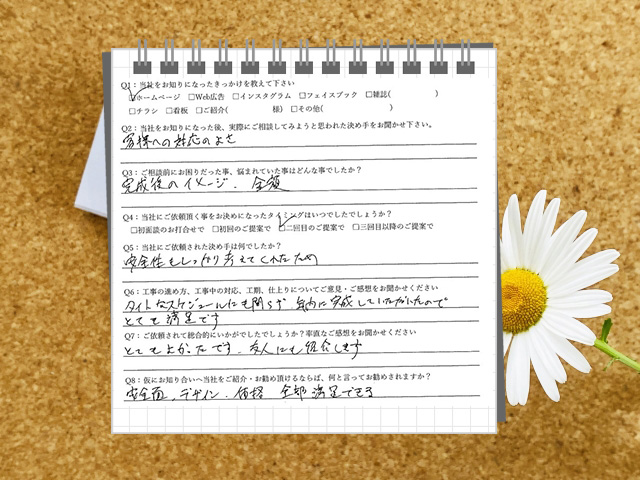 Q1：当社をお知りになったきっかけを教えて下さい
☑ホームページ □Web広告 □インスタグラム □フェイスブック □雑誌( )
□チラシ □看板 □ご紹介( 様) □その他( )
Q2：当社をお知りになった後、実際にご相談してみようと思われた決め手をお聞かせ下さい。
客様への対応のよさ
Q3：ご相談前にお困りだった事、悩まれていた事はどんな事でしたか？
完成後のイメージ、金額
Q4：当社にご依頼頂く事をお決めになったタイミングはいつでしたでしょうか？
□初面談のお打合せで □初回のご提案で ☑二回目のご提案で □三回目以降のご提案で
Q5：当社にご依頼された決め手は何でしたか？
安全性もしっかり考えてくれたため
Q6：工事の進め方、工事中の対応、工期、仕上りについてご意見・ご感想をお聞かせください
タイトなスケジュールにも関らず、年内に完成していただいたので
とても満足です
Q7：ご依頼されて総合的にいかがでしたでしょうか？率直なご感想をお聞かせください
とてもよかったです。友人にも紹介します
Q8：仮にお知り合いへ当社をご紹介・お勧め頂けるならば、何と言ってお勧めされますか？
安全面、デザイン、価格 全部満足できる